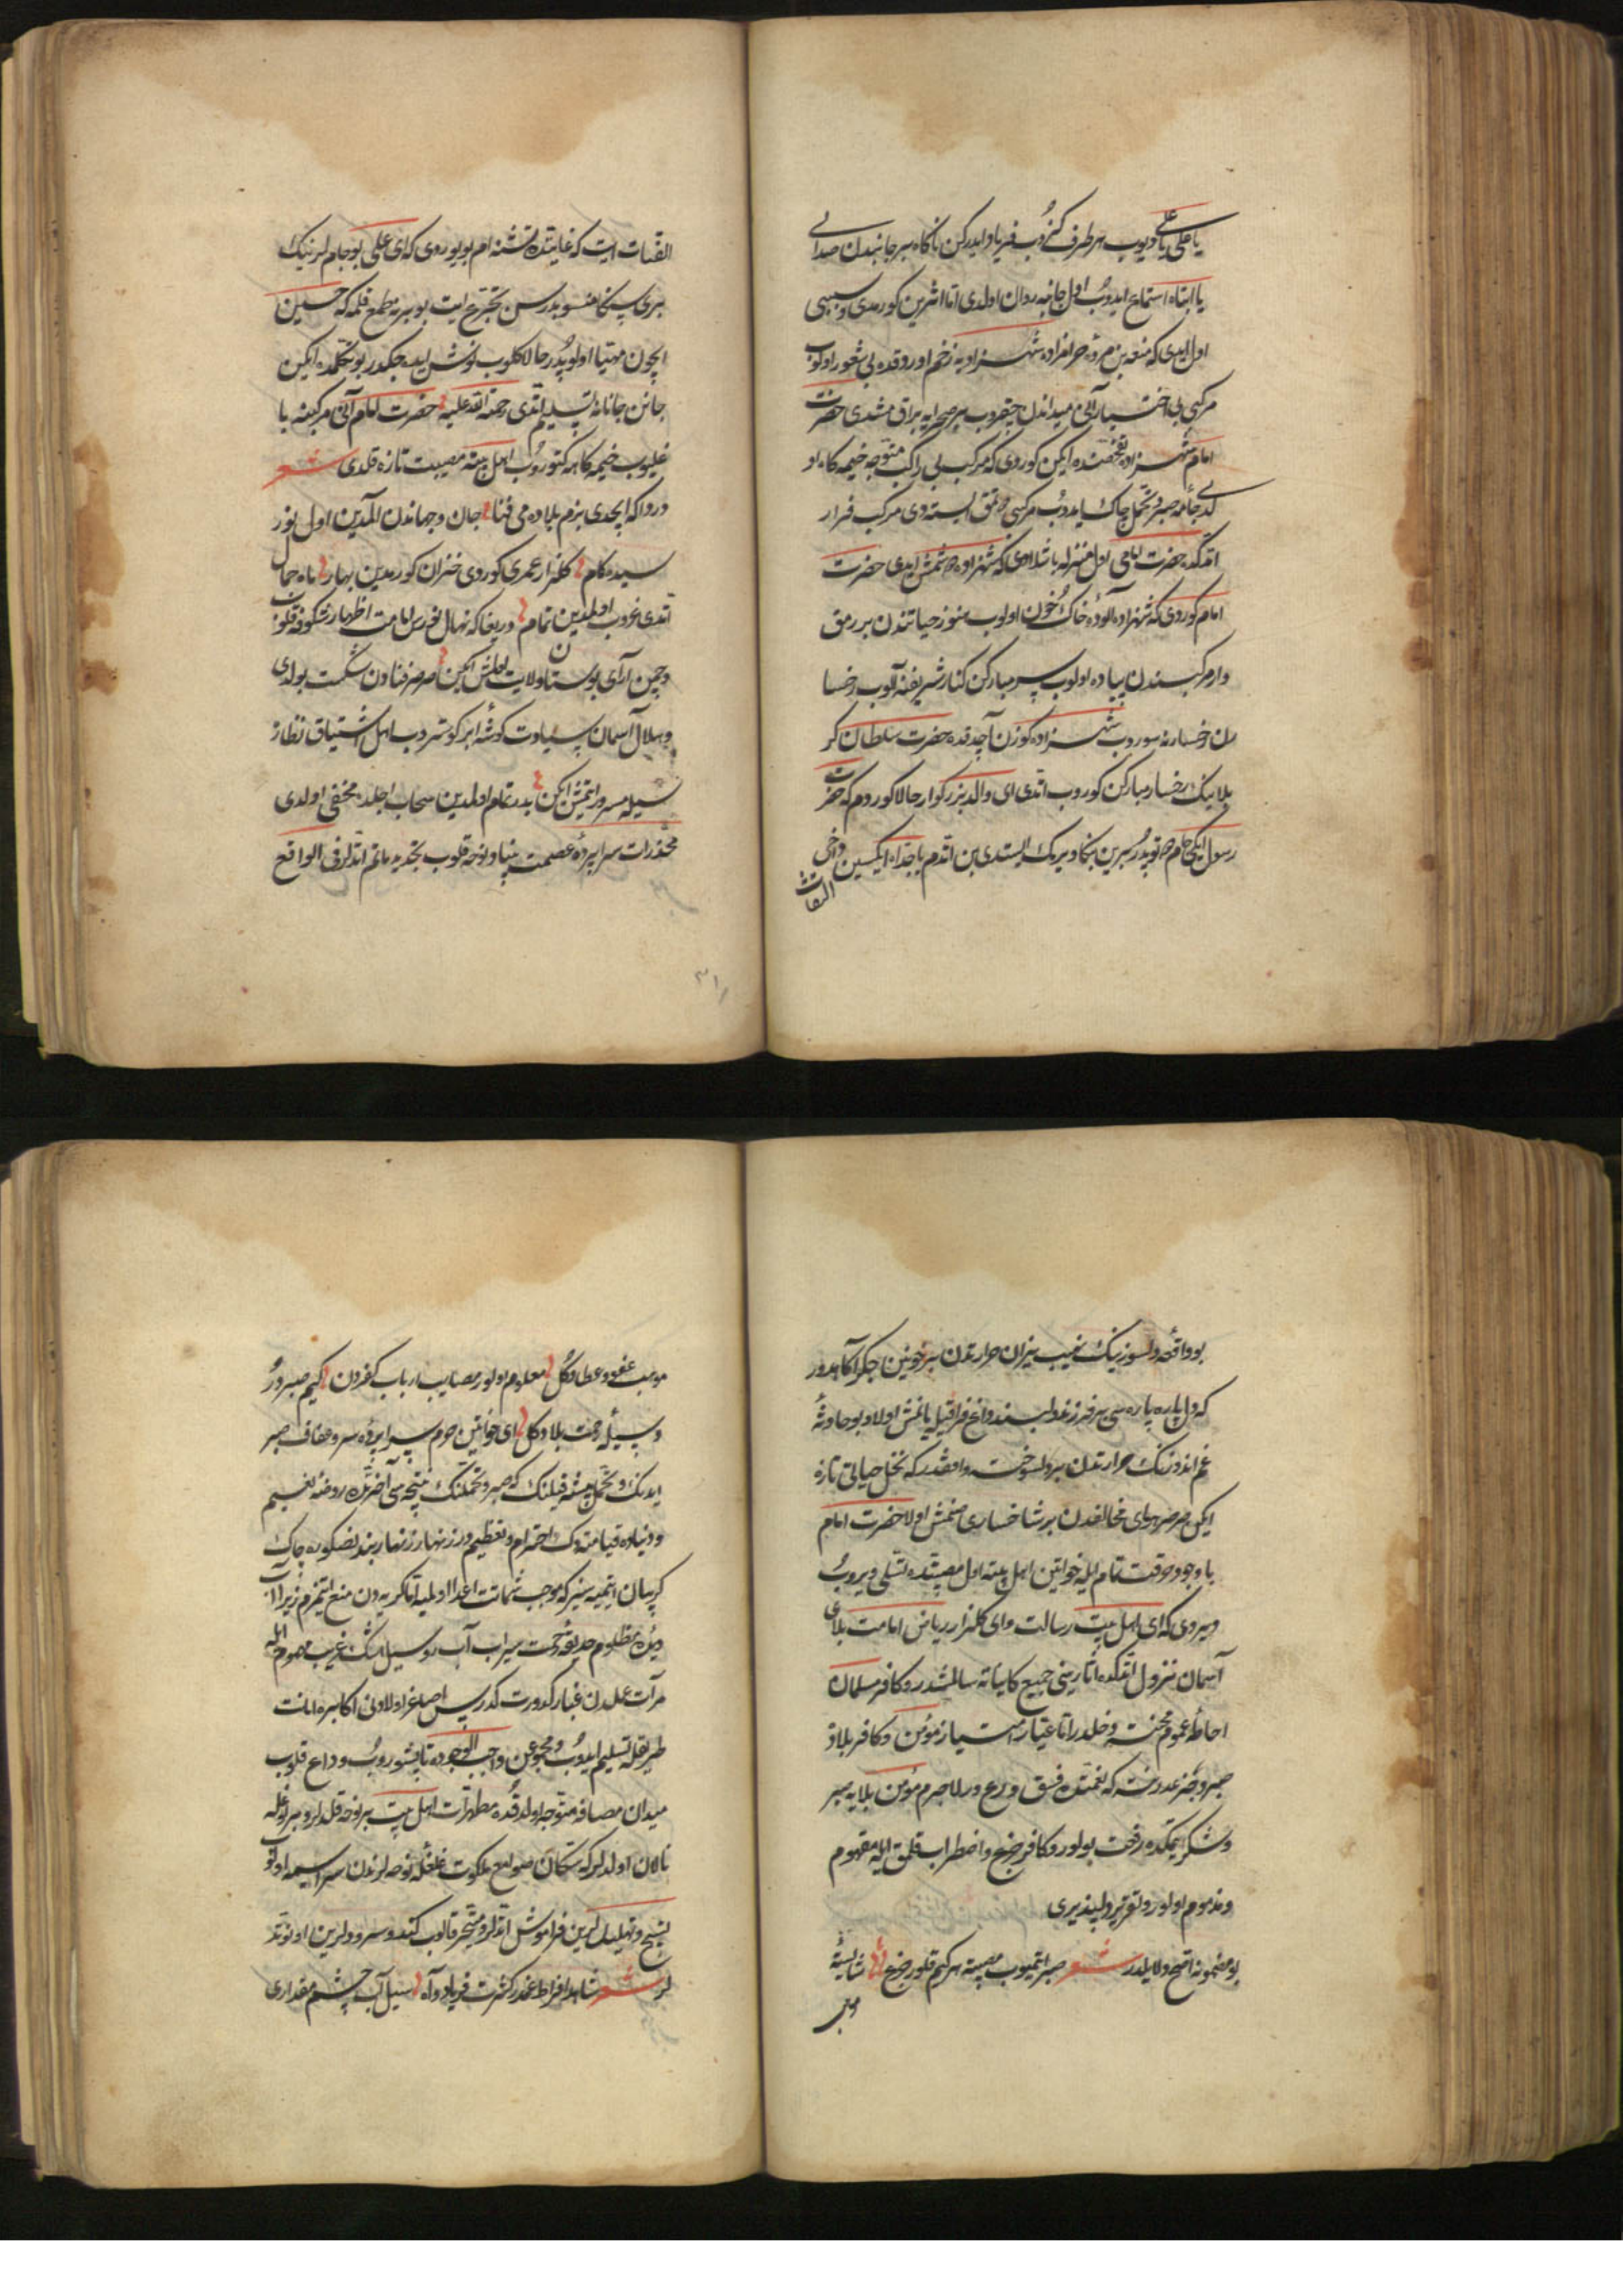 یا علی یا علی دیوب هر طرف کزوب فریاد ایدرکن ناکاه بر جانبدن صدای
یا ابتاه استماع ایدوب اول جانبه روان اولدی اما اثرین کورمدی و سببی
اول ایدی که منقذ بن مره حرامزاده شهزادیه زخم اوردقده بی شعور اولوب
مرکبی بی اختیار آنی میداندن چیقروب بر صحرایه براقمشدی حضرت
امام شهزاده تفحصنده ایکن کوردی که مرکب بی راکب متوجه خیمه کاه او
لدی جامه صبر و تحمل چاک ایدوب مرکبی طوتمق ایستدی مرکب فرار
اتدکده حضرت امامی اول منزله باشلادی که شهزاده دوشمش ایدی حضرت
امام کوردی که شهزاده آلوده خاک و خون اولوب هنوز حیاتندن بر رمق
وار مرکبندن پیاده اولوب سر مبارکن کنار شریفنه آلوب رخسا
رن رخسارنه سوروب شهزاده کوزن آچدقده حضرت سلطان کر
بلانیک رخسار مبارکن کوروب اتدی ای والد بزرکوار حالا کوردم که حضرت
رسول ایکی جام طوتوبدر برین بکا ویرمک ایستدی بن اتدم یا جداه ایکسین داخی
التفات
التفات ایت که غایتده تشنه ام بویوردی که ای علی بو جام لرنیک
بری سکا منسوبدر سن تجرع ایت بو بریه طمع قلمه که حسین
ایچون مهیا اولوبدر حالا کلوب نوش ایده جکدر بو تکلمده ایکن
جانن جانانه تسلیم اتدی رحمة الله علیه حضرت امام آنی مرکبنه با
غلیوب خیمه کاهه کتوروب اهل بیته مصیبت تازه قلدی شعر
دردا که ایچدی بزم بلاده می فنا جان و جهاندن المدین اول نور
سیده کام کلزار عمری کوردی خزان کورمدین بهار ماه جمال
اتدی غروب اولمدین تمام دریغا که نهال نورس امامت اظهار شکوفه قلوب
و چمن آرای بوستان ولایت اولمش ایکن صرصر فنادن شکست بولدی
و هلال آسمان سیادت کوشه ابر کوستروب اهل اشتیاق نظار
سیله مسرور اتمش ایکن بدر تمام اولمدین سحاب اجلده مخفی اولدی
مخدرات سراپرده عصمت بنیاد نوحه قلوب تجدید ماتم اتدلر فی الواقع
بو واقعه دلسوزنیک نهیب نیران حرارتندن بر خونین جکر آکاهدور
که دل پاره پاره سی بر فرزند دلبند داغ فراقیله یانمش اولا و بو حادثه
غم اندوزنک حرارتندن بر دلسوخته واقفدر که نخل حیاتی تازه
ایکن صرصر هوای مخالفدن بر شاخساری صنمش اولا حضرت امام
با وجود رقت تمام ایله خواتین اهل بیته اول مصیبتده تسلی ویروب
دیردی که ای اهل بیت رسالت و ای کلزار ریاض امامت بلای
آسمان نزول اتدکده آثارینی جمیع کایناته سالمشدر و کافر مسلمان
احاطه عموم محنته داخلدر اما اعتبار امتیاز مؤمن و کافر بلاده
صبر و جزعدندر نته که نعمتده فسق و ورعدر لاجرم مؤمن بلایه صبر
و شکر چکمکده رفعت بولور و کافر جزع و اضطراب قلمق ایله مقهوم
و مذموم اولور و تقریر دلپذیری
بو مضمونه افصح دلایلدر شعر صبر اتمیوب مصیبته هر کیم قلور جزع شایسته
موهب
موهب عفو و عطا دکل معلوم اولور مصایب ارباب کفردن کیم صبردور
وسیله رحمت بلا دکل ای خواتین حرم سراپرده سر و عفاف صبر
ایدنک و تحمل پیشه قیلنک که صبر و تحملنک نتیجه سی آخرتده روضه نعیم
و دنیاده قیامته دک احترام و تعظیمدور زنهار زنهار بندن صکره چاک
کریبان اتمیه سیز که موجب شماتت اعدا اولمیه اما کریه دن منع اتمزم زیرا
دیده مظلوم حدیقه رحمت سیراب آب و سیل اشک غریب مهموم ایله
مرآت عملدن غبار کدورت کدر پس اصاغر اولادنی اکابره امانت
طریقله تسلیم ایدوب و مجموعن واجب الوجوده تاپشوروب وداع قلوب
میدان مصافه متوجه اولدقده مطهرات اهل بیت بر نوحه قلدلر و بر نوعله
نالان اولدلر که سکان صوامع ملکوت غلغله نوحه لرندن سراسیمه اولوب
تسبیح و تهلیللرین فراموش اتدلر و متحیر قالوب کند و سرودلرین اونوتد
لر شعر شاهد افراط غمدر کثرت فریاد و آه سیل آب چشم مقداری